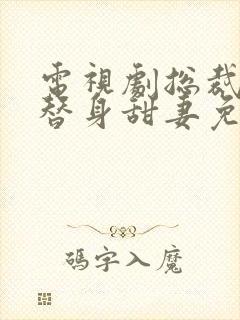 電視劇總裁
替身甜妻免
碼字入魔